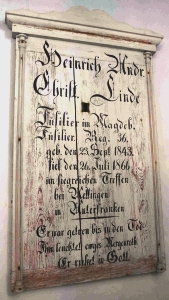 Heinrich Andr.
Christ. Linde
Füsilier im Magdeb.
Füsilier. Reg. 36.
geb. den 23. Sept. 1843.
fiel den 26. Juli 1866
im siegreichen Treffen
bei Rettingen
in Unterfranken
Er war getreu bis in den Tod
Ihm leuchtet ewges Morgenroth
Er ruhet in Gott.